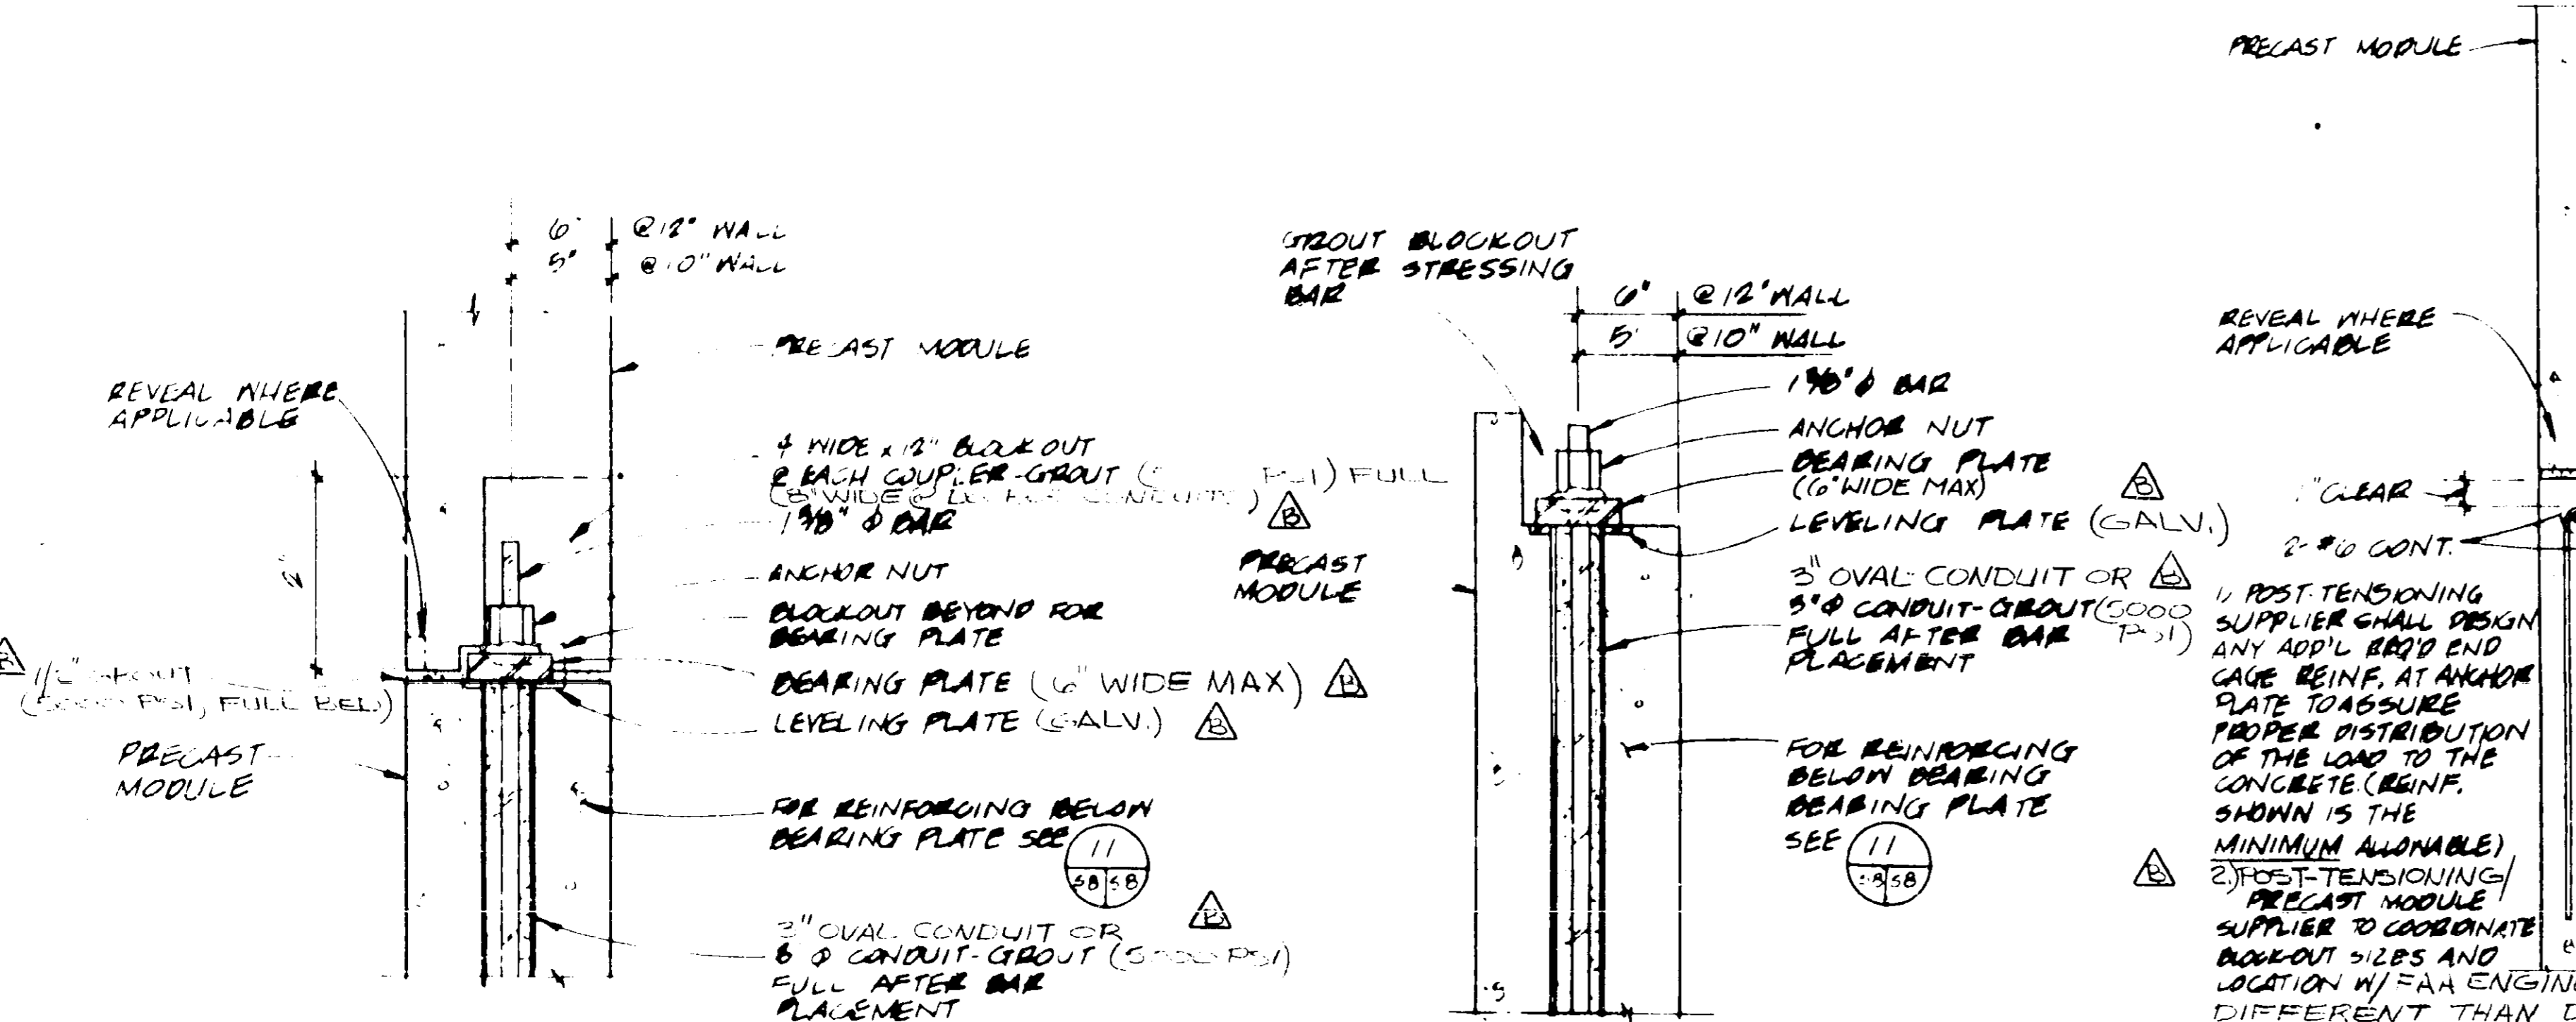 6"
@ 12" WALL
5"
@ 10" WALL
PRECAST MODULE
REVEAL WHERE
APPLICABLE
4 WIDE x 12" BLOCKOUT
@ EACH COUPLER-GROUT ( PSI) FULL
(8" WIDE @
1 3/8" φ BAR
B
ANCHOR NUT
BLOCKOUT BEYOND FOR
BEARING PLATE
BEARING PLATE (6" WIDE MAX) B
LEVELING PLATE (GALV.) B
B 1/2" GROUT
(5000 PSI, FULL BED)
PRECAST
MODULE
FOR REINFORCING BELOW
BEARING PLATE SEE
11
S8 S8
B
3" OVAL CONDUIT OR
φ CONDUIT-GROUT (5000 PSI)
FULL AFTER BAR
PLACEMENT
GROUT BLOCKOUT
AFTER STRESSING
BAR
6" @ 12" WALL
5" @ 10" WALL
1 3/8" φ BAR
ANCHOR NUT
BEARING PLATE
(6" WIDE MAX) B
LEVELING PLATE (GALV.)
PRECAST
MODULE
3" OVAL CONDUIT OR B
3" φ CONDUIT-GROUT (5000
FULL AFTER BAR PSI)
PLACEMENT
FOR REINFORCING
BELOW BEARING
BEARING PLATE
SEE
11
S8 S8
PRECAST MODULE
REVEAL WHERE
APPLICABLE
1" CLEAR
2-#6 CONT.
1) POST-TENSIONING
SUPPLIER SHALL DESIGN
ANY ADD'L REQ'D END
CAGE REINF. AT ANCHOR
PLATE TO ASSURE
PROPER DISTRIBUTION
OF THE LOAD TO THE
CONCRETE. (REINF.
SHOWN IS THE
MINIMUM ALLOWABLE)
B 2) POST-TENSIONING/
PRECAST MODULE
SUPPLIER TO COORDINATE
BLOCKOUT SIZES AND
LOCATION W/ FAA
DIFFERENT THAN